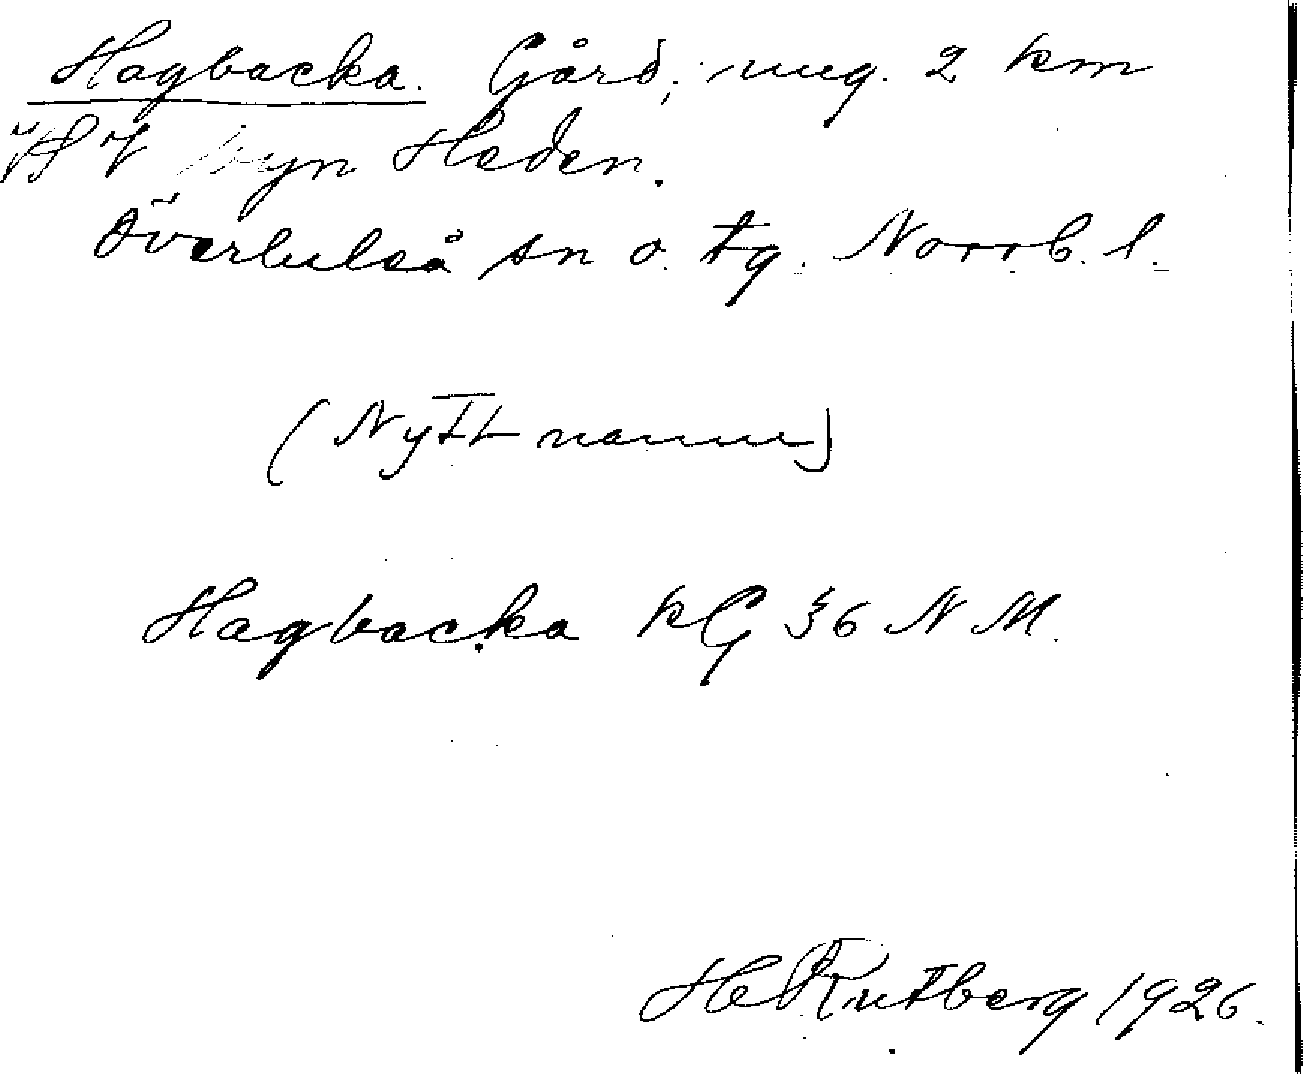 Hagbacka. Gård, ung. 2 km
V byn Heden.
Överluleå sn o. tg. Norrb. l.
(Nytt namn)
Hagbacka kG §6 N M.
HRutberg 1926.